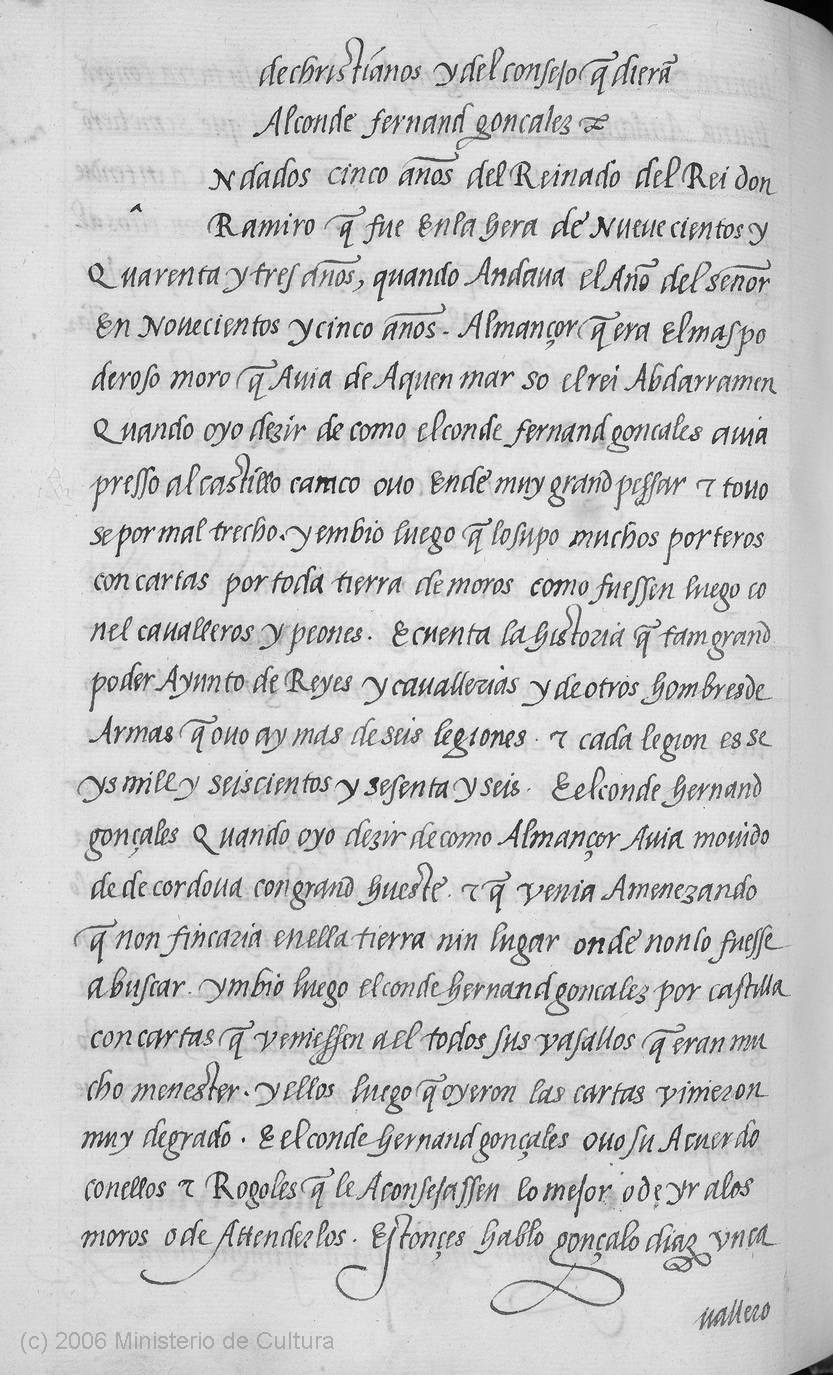 de christianos y del consejo q̃ dierã
Al conde fernand goncalez ⁊
Ndados cinco años del Reinado del Rei don
Ramiro q̃ fue En la hera de Nueve cientos y
Quarenta y tres años, quando Andava el Año del señor
En Novecientos y cinco años - Almançor q̃ era El mas po
deroso moro q̃ Avia de Aquen mar so el rei Abdarramen
Quando oyo dezir de como el conde fernand goncales avia
presso al castillo caraco ovo Ende muy grand pessar ⁊ tovo
se por mal trecho. y embio luego q̃ lo supo muchos porteros
con cartas por toda tierra de moros como fuessen luego co
nel cavalleros y peones. E cuenta la historia q̃ tam grand
poder Ayunto de Reyes y cavallerias y de otros hombres de
Armas q̃ ovo ay mas de seis legiones. ⁊ cada legion es se
ys mill y seiscientos y sesenta y seis. E el conde hernand
gonçales Quando oyo dezir de como Almançor Avia movido
de de cordova con grand hueste. ⁊ q̃ venia Amenezando
q̃ non fincaria en ella tierra nin lugar onde non lo fuesse
a buscar. ymbio luego el conde hernand goncalez por castilla
con cartas q̃ veniessen a el todos sus vasallos q̃ eran mu
cho menester. y ellos luego q̃ oyeron las cartas vinieron
muy de grado. E el conde hernand gonçales ovo su Acuerdo
con ellos ⁊ Rogoles q̃ le Aconsejassen lo mejor o de yr a los
moros o de Attenderlos. Estonçes hablo gonçalo diaz vn ca
vallero
(c) 2006 Ministerio de Cultura